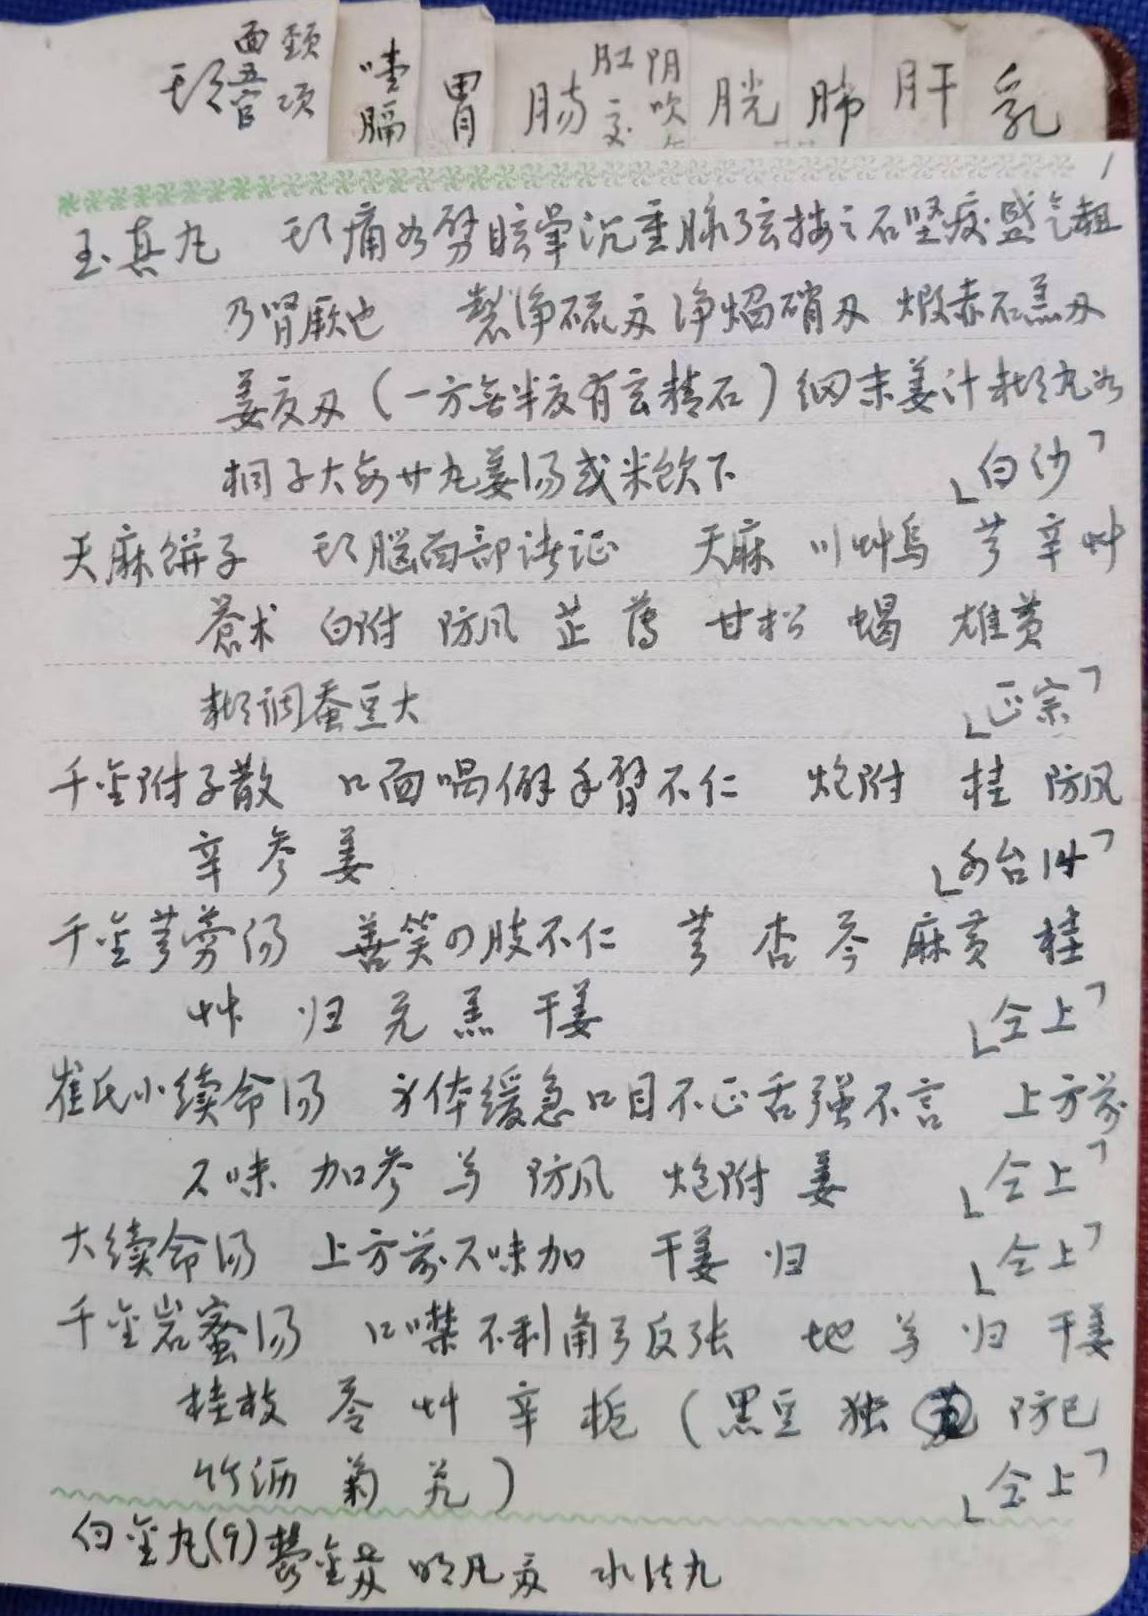 头 面五官 颈项 噎膈 胃 肠 肛 阴吹 胱 肺 肝 乳
1
玉真丸 头痛如劈眩晕沉重脉弦按之石坚痰盛气粗
乃肾厥也 制净硫 净焰硝 煅赤石羔
姜夏（一方无半夏有玄精石）细末姜汁糊丸如
桐子大每廿丸姜汤或米饮下 「白沙」
天麻饼子 头脑面部诸证 天麻 川草乌 芎 辛 草
苍术 白附 防风 芷 薄 甘松 蝎 雄黄
糊调蚕豆大 「正宗」
千金附子散 口面喎僻手臂不仁 炮附 桂 防风
辛 参 姜 「外台14」
千金芎䓖汤 善笑四肢不仁 芎 杏 芩 麻黄 桂
草 归 羔 干姜 「仝上」
崔氏小续命汤 身体缓急口目不正舌强不言 上方前
六味 加参 芍 防风 炮附 姜 「仝上」
大续命汤 上方前六味加 干姜 归 「仝上」
千金岩蜜汤 口噤不利角弓反张 地 芍 归 干姜
桂枝 草 辛 栀（黑豆 独 防己
竹沥 菊 羌） 「仝上」
白金丸(9) 郁金 明凡 水法丸